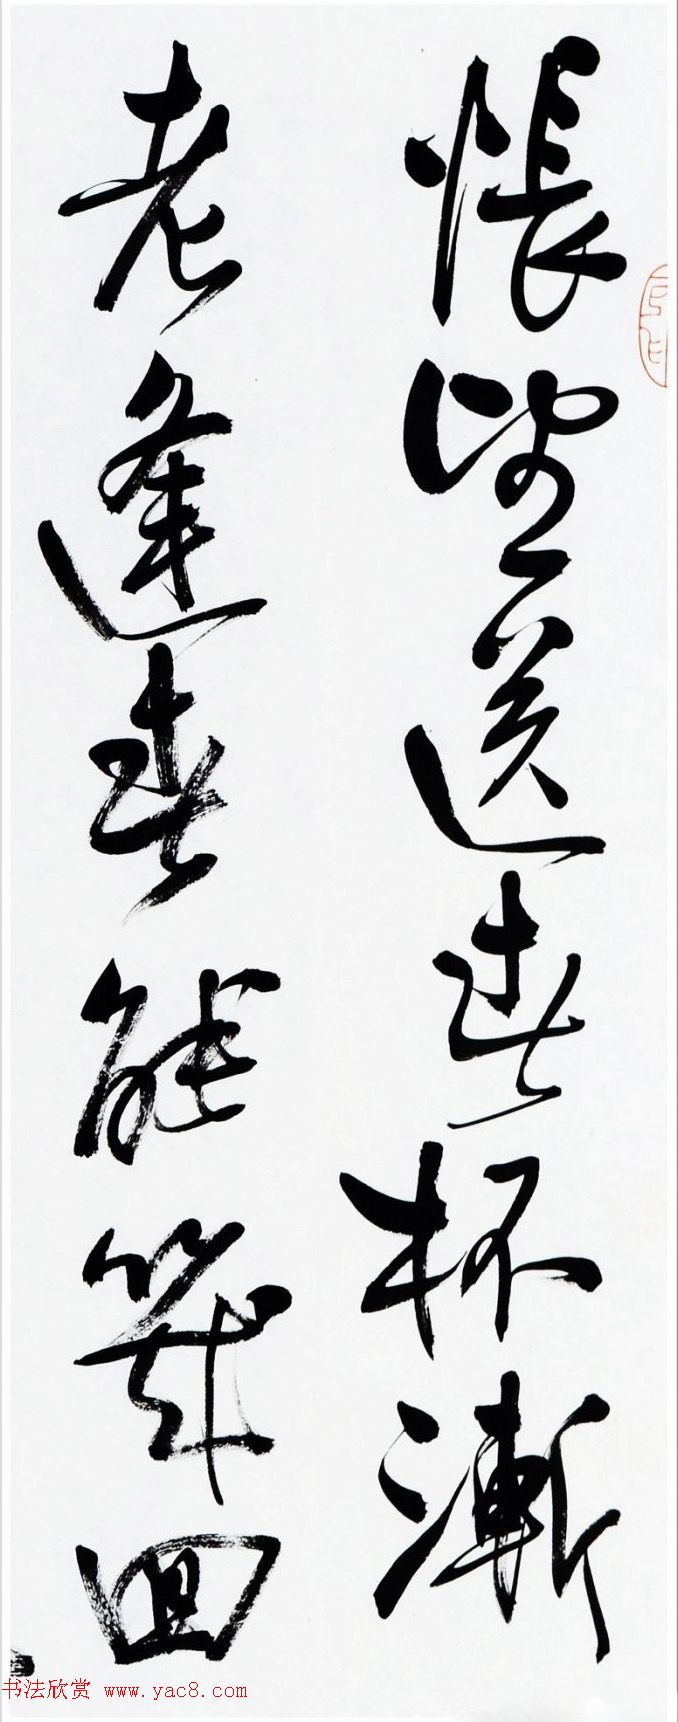 悵望送春杯漸
老逢春能幾回
书法欣赏 www.yac8.com